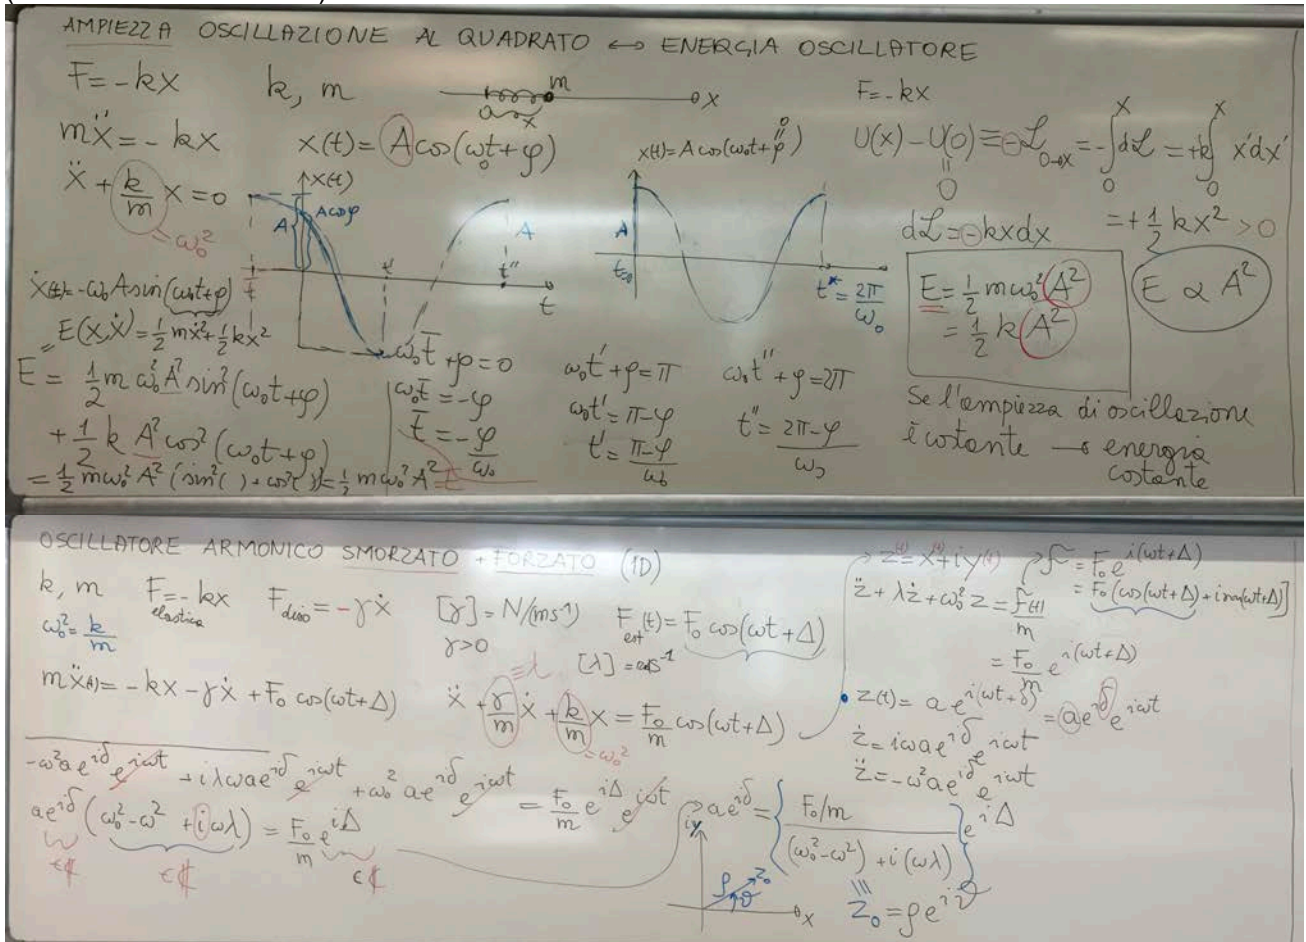 AMPIEZZA OSCILLAZIONE AL QUADRATO ↔ ENERGIA OSCILLATORE
F=-kx k, m
m
x
x
mẍ = -kx
x(t) = A cos(ω₀t+φ)
ẍ + k/m x = 0
= ω₀²
x(t)
A
A cos φ
t'
A
t''
t
ẋ(t) = -ω₀A sin(ω₀t+φ)
E(x,ẋ) = 1/2 mẋ² + 1/2 kx²
E = 1/2 m ω₀² A² sin²(ω₀t+φ)
+ 1/2 k A² cos²(ω₀t+φ)
= 1/2 mω₀² A² (sin²( ) + cos²( )) = 1/2 m ω₀² A² = E
ω₀t̄ + φ = 0
ω₀t̄ = -φ
t̄ = -φ/ω₀
x(t) = A cos(ω₀t+φ)
0
A
t=0
t* = 2π/ω₀
ω₀t' + φ = π
ω₀t' = π-φ
t' = π-φ/ω₀
ω₀t'' + φ = 2π
t'' = 2π-φ/ω₀
F=-kx
U(x) - U(0) ≡ -ℒ₀→ₓ = -∫₀ˣ dℒ = +k∫₀ˣ x'dx'
0
dℒ = -kxdx
= + 1/2 kx² > 0
E = 1/2 mω₀² A²
= 1/2 k A²
E ∝ A²
Se l'ampiezza di oscillazione
è costante → energia
costante
OSCILLATORE ARMONICO SMORZATO + FORZATO (1D)
k, m F=-kx F = -γẋ [γ] = N/(ms⁻¹) F(t) = F₀ cos(ωt+Δ)
elastica
diss
est
ω₀² = k/m
γ>0
[λ] = s⁻¹
mẍ(t) = -kx - γẋ + F₀ cos(ωt+Δ)
≡λ
ẍ + γ/m ẋ + k/m x = F₀/m cos(ωt+Δ)
= ω₀²
-ω²a e^iδ e^iωt + iλωa e^iδ e^iωt + ω₀² a e^iδ e^iωt = F₀/m e^iΔ e^iωt
a e^iδ (ω₀² - ω² + iωλ) = F₀/m e^iΔ
∈ℂ ∈ℂ ∈ℂ
z(t) = x(t) + iy(t)
f̃ = F₀ e^i(ωt+Δ)
= F₀ [cos(ωt+Δ) + i sen(ωt+Δ)]
z̈ + λż + ω₀² z = f̃(t)/m
= F₀/m e^i(ωt+Δ)
z(t) = a e^i(ωt+δ) = a e^iδ e^iωt
ż = iωa e^iδ e^iωt
z̈ = -ω²a e^iδ e^iωt
a e^iδ = { F₀/m / (ω₀²-ω²) + i(ωλ) } e^iΔ
iy
ρ
z₀
ϑ
x
z₀ = ρe^iϑ